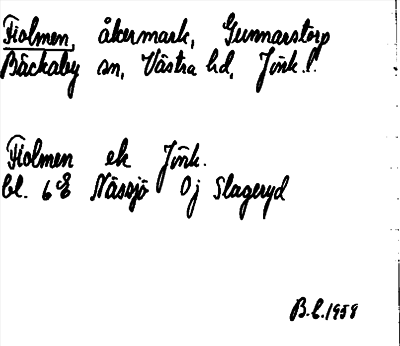 Fiolmen, åkermark, Gunnarstorp
Bäckaby sn, Västra hd, Jönk. l.
Fiolmen ek Jönk.
bl. 6E Nässjö Oj Slageryd
B.L. 1958